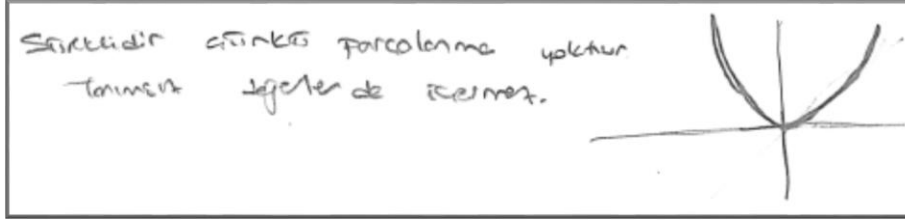 Süreklidir çünkü parçalanma yoktur
Tanımsız değerler de içermez.